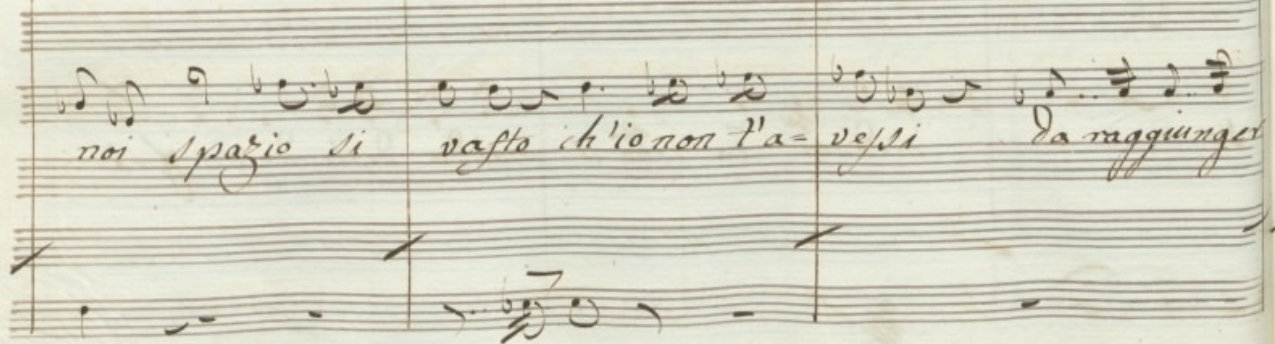 noi spazio si vasto ch'io non t'a= vessi da raggiunger